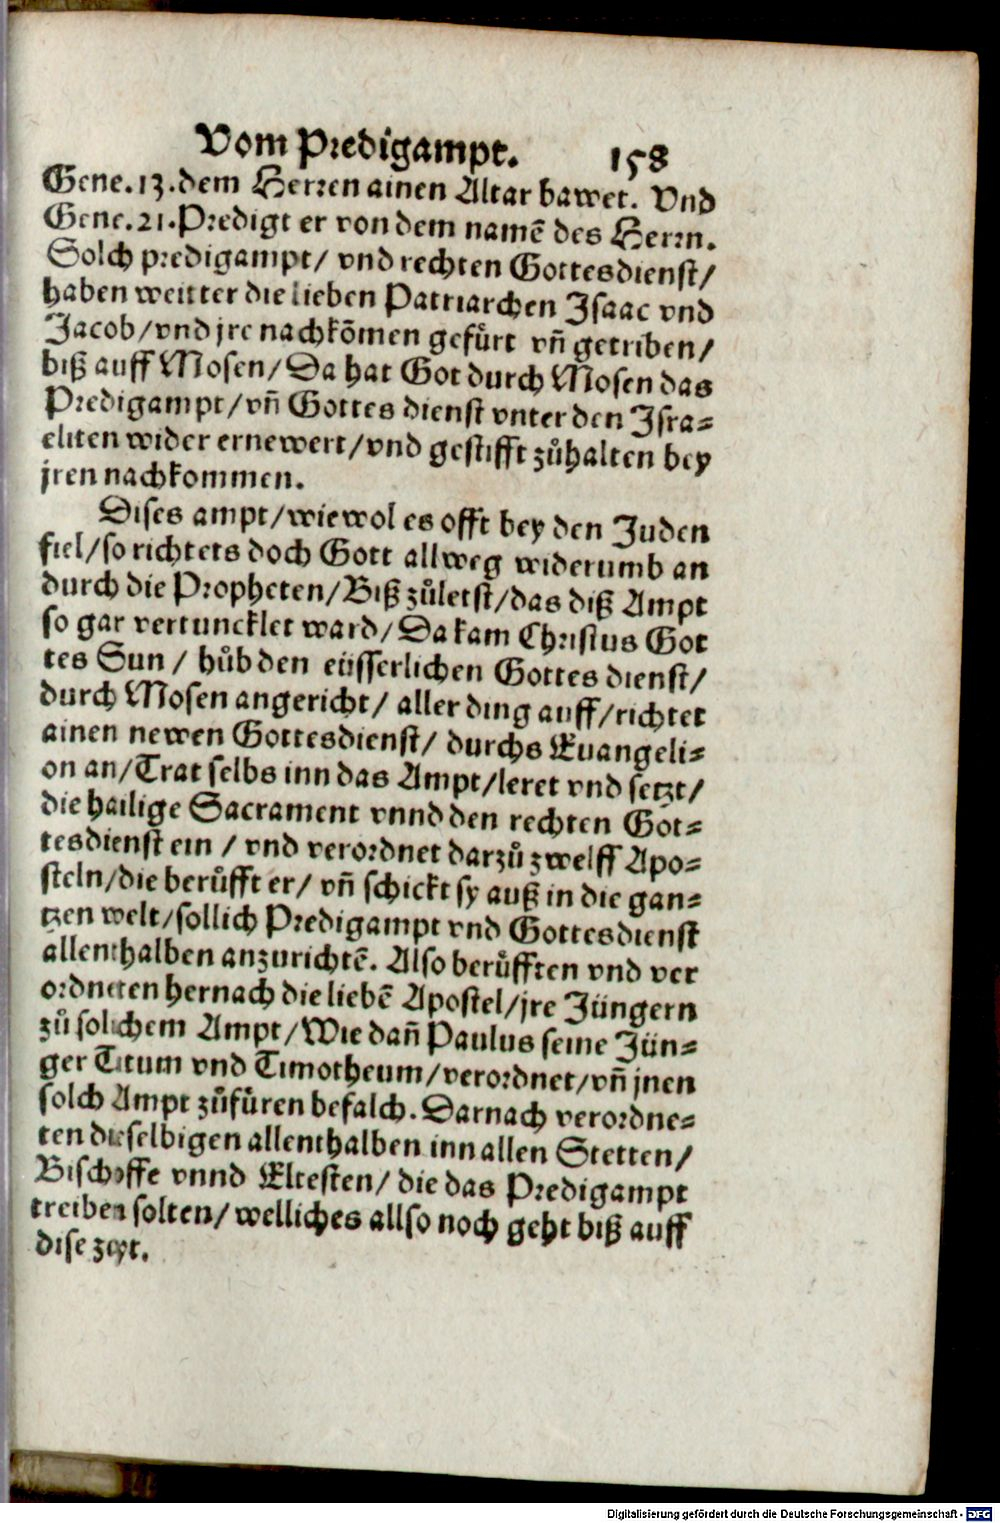 Vom Predigampt. 158
Gene.13.dem Herren ainen Altar bawet. Vnd
Gene.21.Predigt er von dem namē des Herrn.
Solch predigampt/ vnd rechten Gottesdienst/
haben weitter die lieben Patriarchen Isaac vnd
Jacob/vnd jre nachkōmen gefuͤrt vn̄ getriben/
biß auff Mosen/Da hat Got durch Mosen das
Predigampt/vn̄ Gottes dienst vnter den Isra-
eliten wider ernewert/vnd gestifft zuͦhalten bey
jren nachkommen.
Dises ampt/wiewol es offt bey den Juden
fiel/so richtets doch Gott allweg widerumb an
durch die Propheten/Biß zuͦletst/das diß Ampt
so gar vertuncklet ward/Da kam Christus Got
tes Sun / huͦb den eüsserlichen Gottes dienst/
durch Mosen angericht/ aller ding auff/richtet
ainen newen Gottesdienst/ durchs Euangeli-
on an/Trat selbs inn das Ampt/leret vnd setzt/
die hailige Sacrament vnnd den rechten Got-
tesdienst ein / vnd verordnet darzuͦ zwelff Apo-
steln/die beruͤfft er/ vn̄ schickt sy auß in die gan-
tzen welt/sollich Predigampt vnd Gottesdienst
allenthalben anzurichtē. Also beruͤfften vnd ver
ordneten hernach die liebē Apostel/jre Jüngern
zuͦ solichem Ampt/Wie dan̄ Paulus seine Jün-
ger Titum vnd Timotheum/verordnet/vn̄ jnen
solch Ampt zuͦfüren befalch. Darnach verordne-
ten dieselbigen allenthalben inn allen Stetten/
Bischoffe vnnd Eltesten/ die das Predigampt
treiben solten/welliches allso noch geht biß auff
dise zeyt.
Digitalisierung gefördert durch die Deutsche Forschungsgemeinschaft - DFG